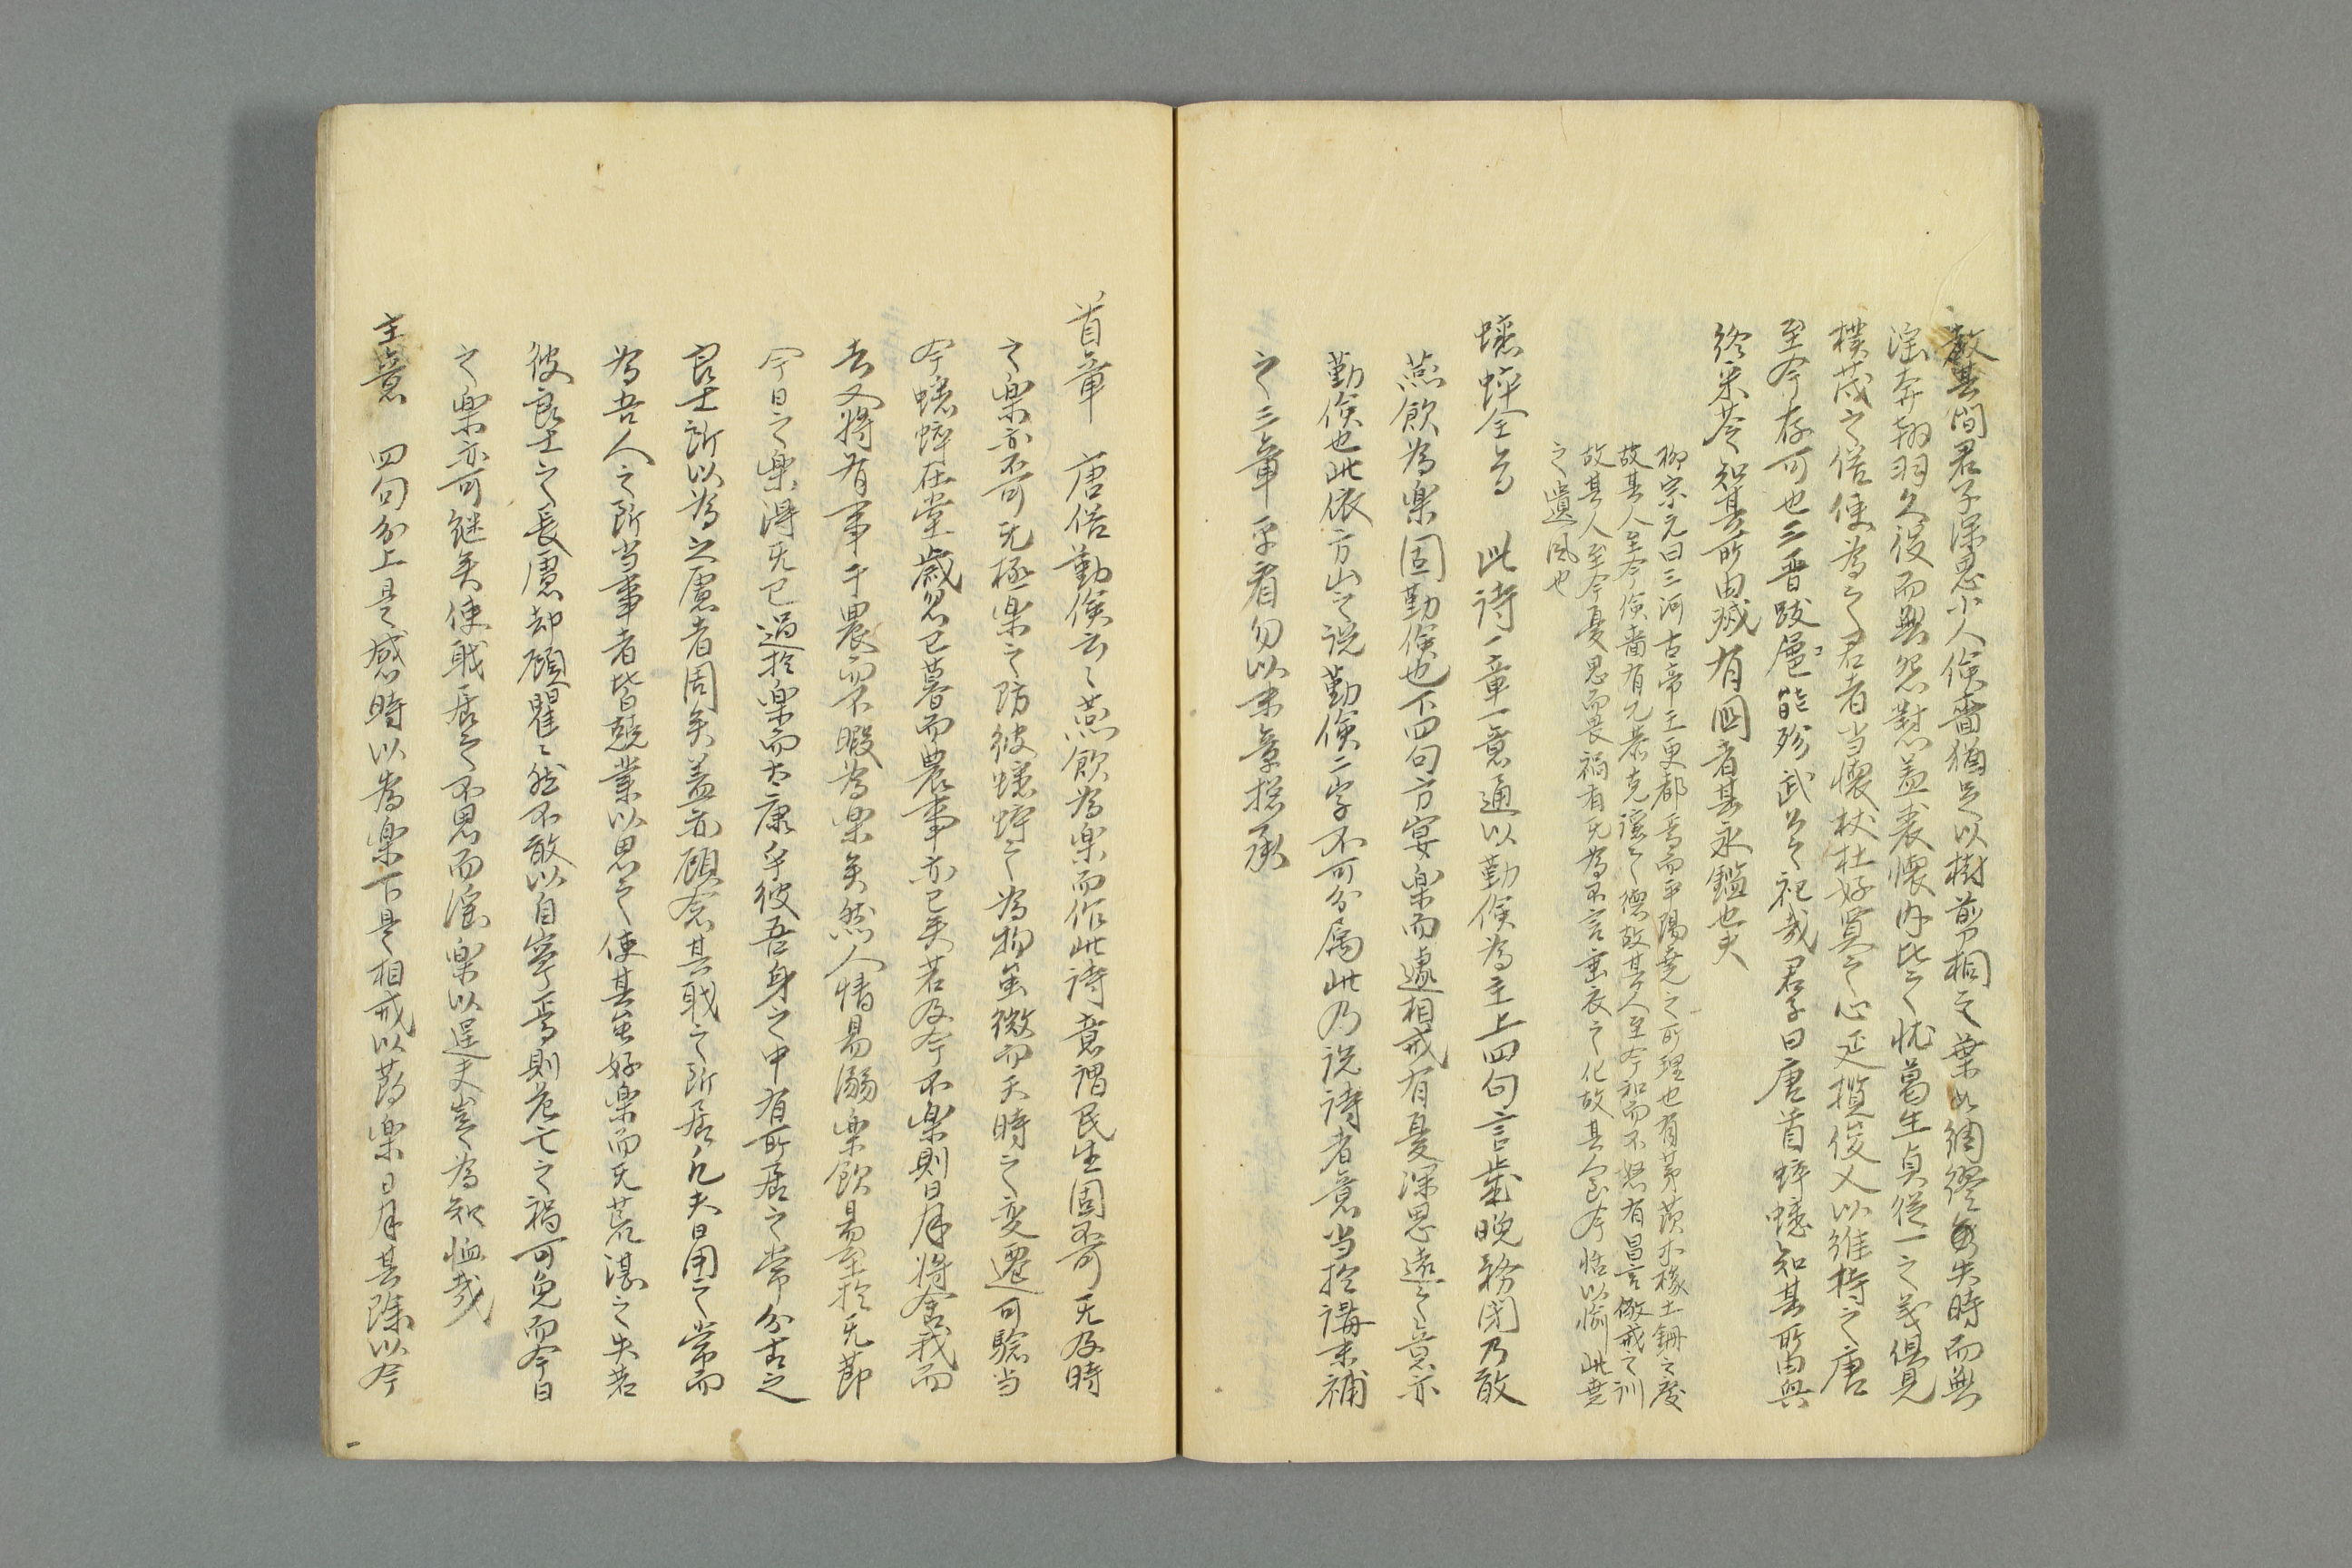 数其間君子深思小人儉嗇猶足以樹剪桐之葉如綢繆每失時而無
淫奔翱羽久役而無怨懟羔裘懐内比之忱葛生貞從一之義俱見
樸茂之俗使為之君者当懐杕杜好冥之心延攬俊乂以維持之唐
至今存可也三晋跋扈能殄武公之祀哉君子曰唐首蟀蟋知其所由興
終采苓知其所由滅有国者其永鑑也夫
柳宗元曰三河古帝王更都焉而平陽堯之所理也有茅茨木椽土鉶之度
故其人至今儉嗇有允恭克讓之德故其人至今和而不怒有昌言儆戒之訓
故其人至今憂思而畏禍有无為不言垂衣之化故其人至今恬以愉此堯
之遺風也
蟋蟀全旨 此詩一章一意通以勤儉為主上四句言歲晚務閑乃敢
燕飲為楽固勤儉也下四句方宴楽而遽相戒有憂深思遠之意亦
勤儉也此依方山之説勤儉二字不可分属此乃説詩者意当於講末補
之三章平看勿以末章揔承
首章 唐俗勤儉云々燕飲為楽而作此詩意謂民生固不可无及時
之楽亦不可无極楽之防彼蟋蟀之為物虽微而天時之変遷可驗当
今蟋蟀在堂歲忽已暮而農事亦已矣若及今不楽則日月将舍我而
去又将有事于農而不暇為楽矣然人情易溺楽飲易至於无節
今日之楽得无已過於楽而太康乎彼吾身之中有所居之常分古之
良士所以為之慮者周矣盖亦顧念其職之所居凡夫日用之常而
為吾人之所当事者皆兢業以思之使其虽好楽而无荒湛之失若
彼良士之長慮却顧瞿々然不敢以自寧焉則危亡之禍可免而今日
之楽亦可継矣使職居之不思而淫楽以逞夫豈為知恤哉
主意 四句分上是感時以為楽下是相戒以節楽日月其除以今